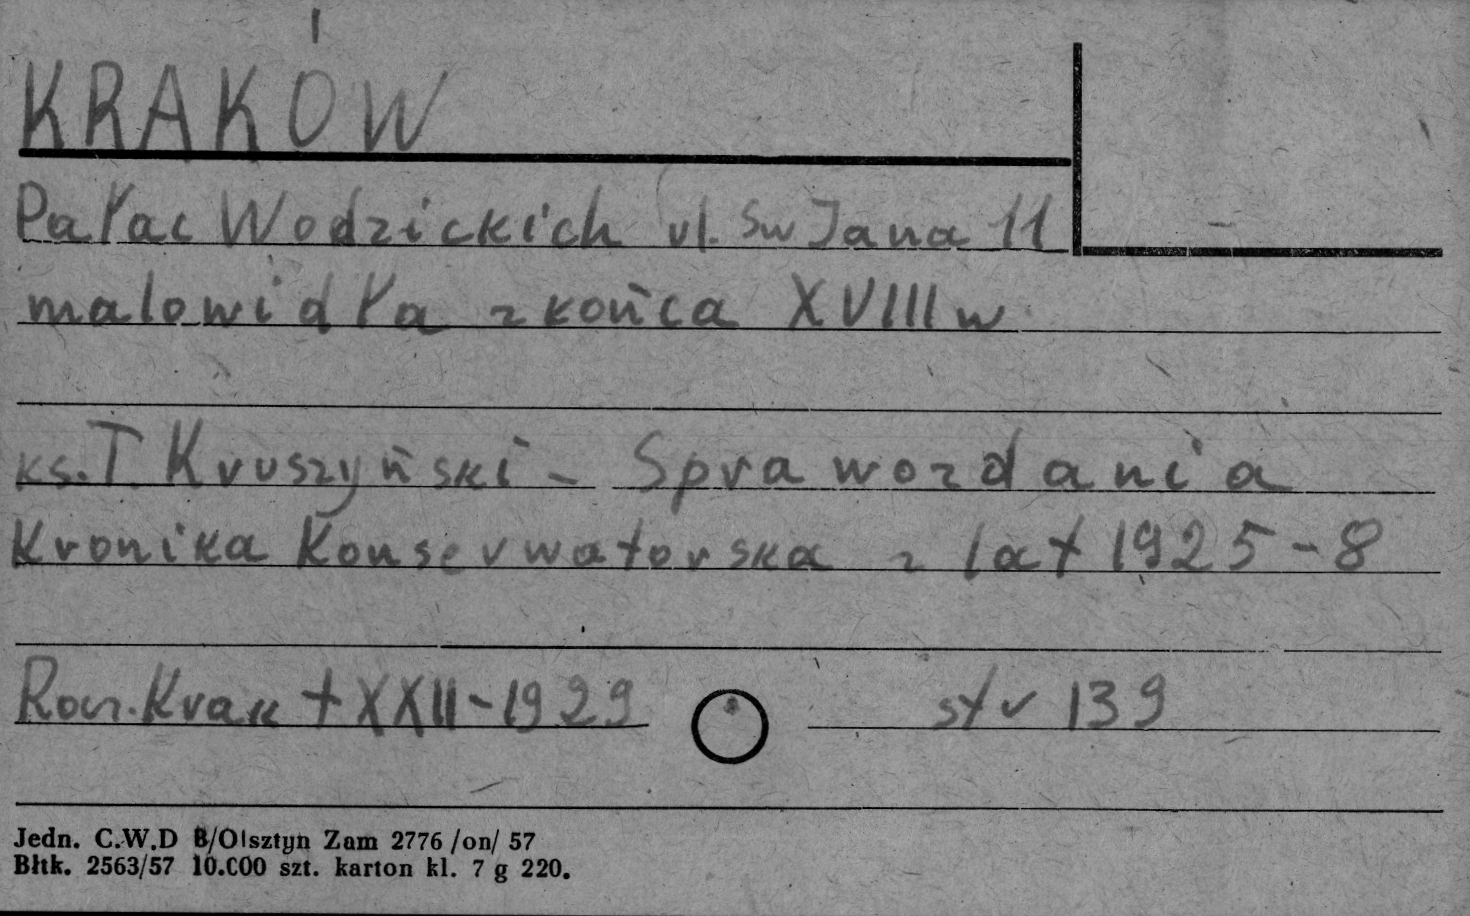 KRAKÓW
Pałac Wodzickich ul. Św Jana 11
malowidła z końca XVIII w
ks. T. Kruszyński – Sprawozdania
Kronika Konserwatorska z lat 1925-8
Rocz. Krak t XXII-1929 str 139
Jedn. C.W.D B/Olsztyn Zam 2776 /on/ 57
Błtk. 2563/57 10.000 szt. karton kl. 7 g 220.